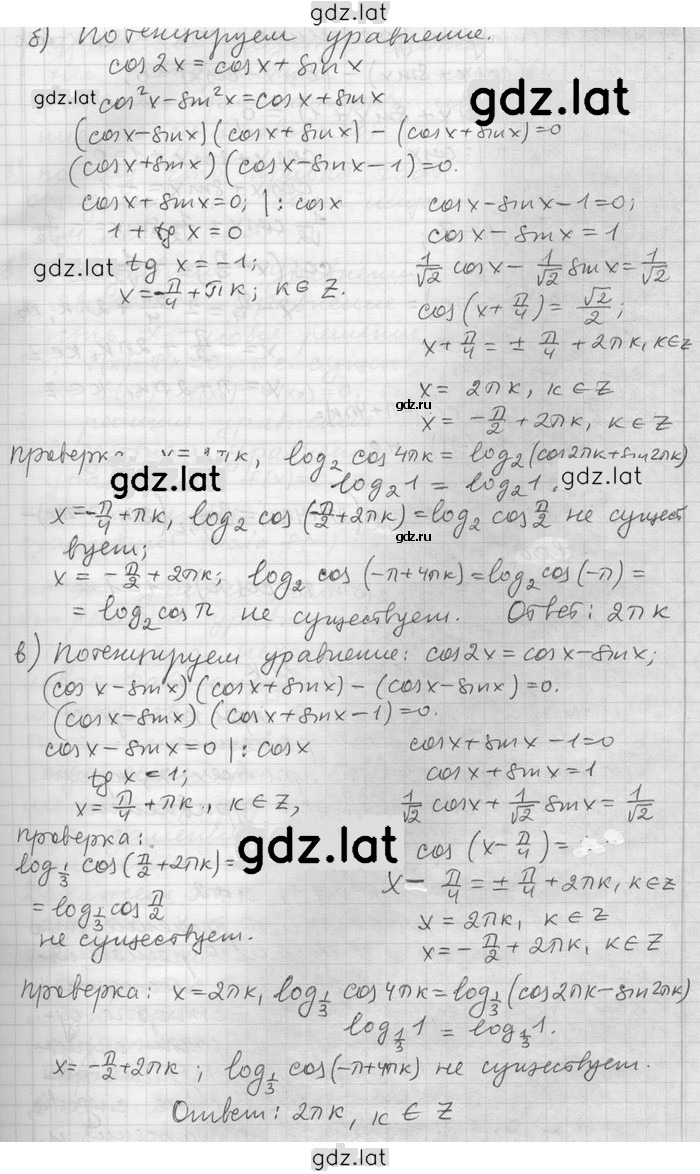 gdz.lat
б) Потенцируем уравнение.
cos2x=cosx+sinx
gdz.lat cos²x-sin²x=cosx+sinx gdz.lat
(cosx-sinx)(cosx+sinx)-(cosx+sinx)=0
(cosx+sinx)(cosx-sinx-1)=0.
cosx+sinx=0; |: cosx
1+tg x=0
gdz.lat tg x=-1;
x=-π/4+πk; k∈Z.
cosx-sinx-1=0;
cosx-sinx=1
1/√2 cosx- 1/√2 sinx=1/√2
cos(x+π/4)= √2/2;
x+π/4=± π/4 +2πk, k∈Z
x= 2πk, k∈Z
gdz.ru
x= -π/2+2πk, k∈Z
log₂ cos4πk=log₂(cos2πk+sin2πk)
gdz.lat log₂1=log₂1. gdz.lat
x=-π/4+πk, log₂ cos(-π/2+2πk)=log₂ cos π/2 не сущест
gdz.ru
вует;
x= -π/2+2πk; log₂ cos(-π+4πk)=log₂cos(-π)=
=log₂cosπ не существует. Ответ: 2πk
в) Потенцируем уравнение: cos2x=cosx-sinx;
(cosx-sinx)(cosx+sinx)-(cosx-sinx)=0.
(cosx-sinx)(cosx+sinx-1)=0.
cosx-sinx=0 |: cosx
tgx=1;
x= π/4+πk, k∈Z,
проверка:
log₁/₃ cos(π/2+2πk)=
=log₁/₃cos π/2
не существует.
cosx+sinx-1=0
cosx+sinx=1
1/√2 cosx+1/√2 sinx=1/√2
gdz.lat
cos(x-π/4)=
x- π/4=±π/4+2πk, k∈Z
x=2πk, k∈Z
x=-π/2+2πk, k∈Z
проверка: x=2πk, log₁/₃ cos4πk=log₁/₃(cos2πk-sin2πk)
log₁/₃1=log₁/₃1.
x=-π/2+2πk; log₁/₃ cos(-π+4πk) не существует.
Ответ: 2πk, k∈Z
gdz.lat